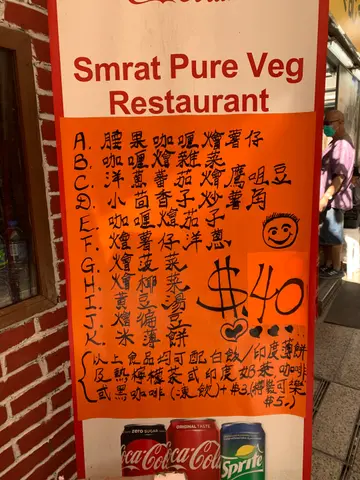 Smrat Pure Veg
Restaurant
A. 腰果咖喱燴薯仔
B. 咖喱燴雜菜
C. 洋蔥蕃茄燴鷹咀豆
D. 小茴香子炒薯角
E. 咖喱燴茄子
F. 燴薯仔洋蔥
G. 燴菠菜
H. 燴椰菜
I. 黃豆湯
J. 燴扁豆
K. 米薄餅
$40
(以上食品均可配白飯/印度薄餅
及熱檸檬茶或印度奶茶咖啡
或黑咖啡(凍飲)+$3.(樽裝可樂
$5.)
ZERO SUGAR
ORIGINAL TASTE
Coca-Cola
Coca-Cola
Sprite